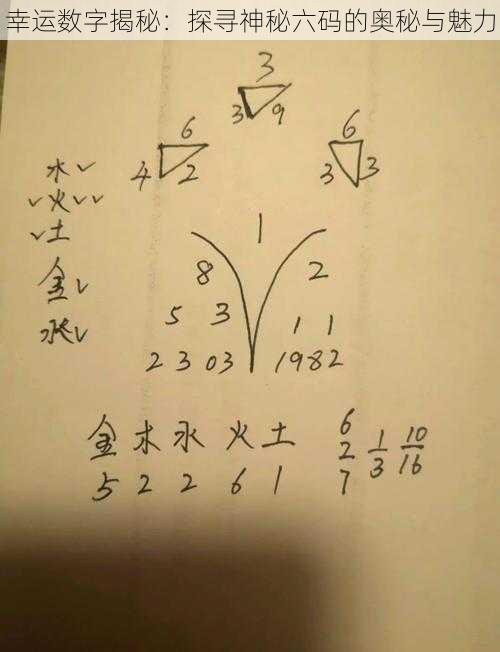 幸运数字揭秘：探寻神秘六码的奥秘与魅力
3
3 9
6
4 2
6
3 3
木
火
土
金
水
1
8 2
5 3 1 1
2 3 03 1982
金 木 水 火 土
5 2 2 6 1
6
2
7
1/3
10/16